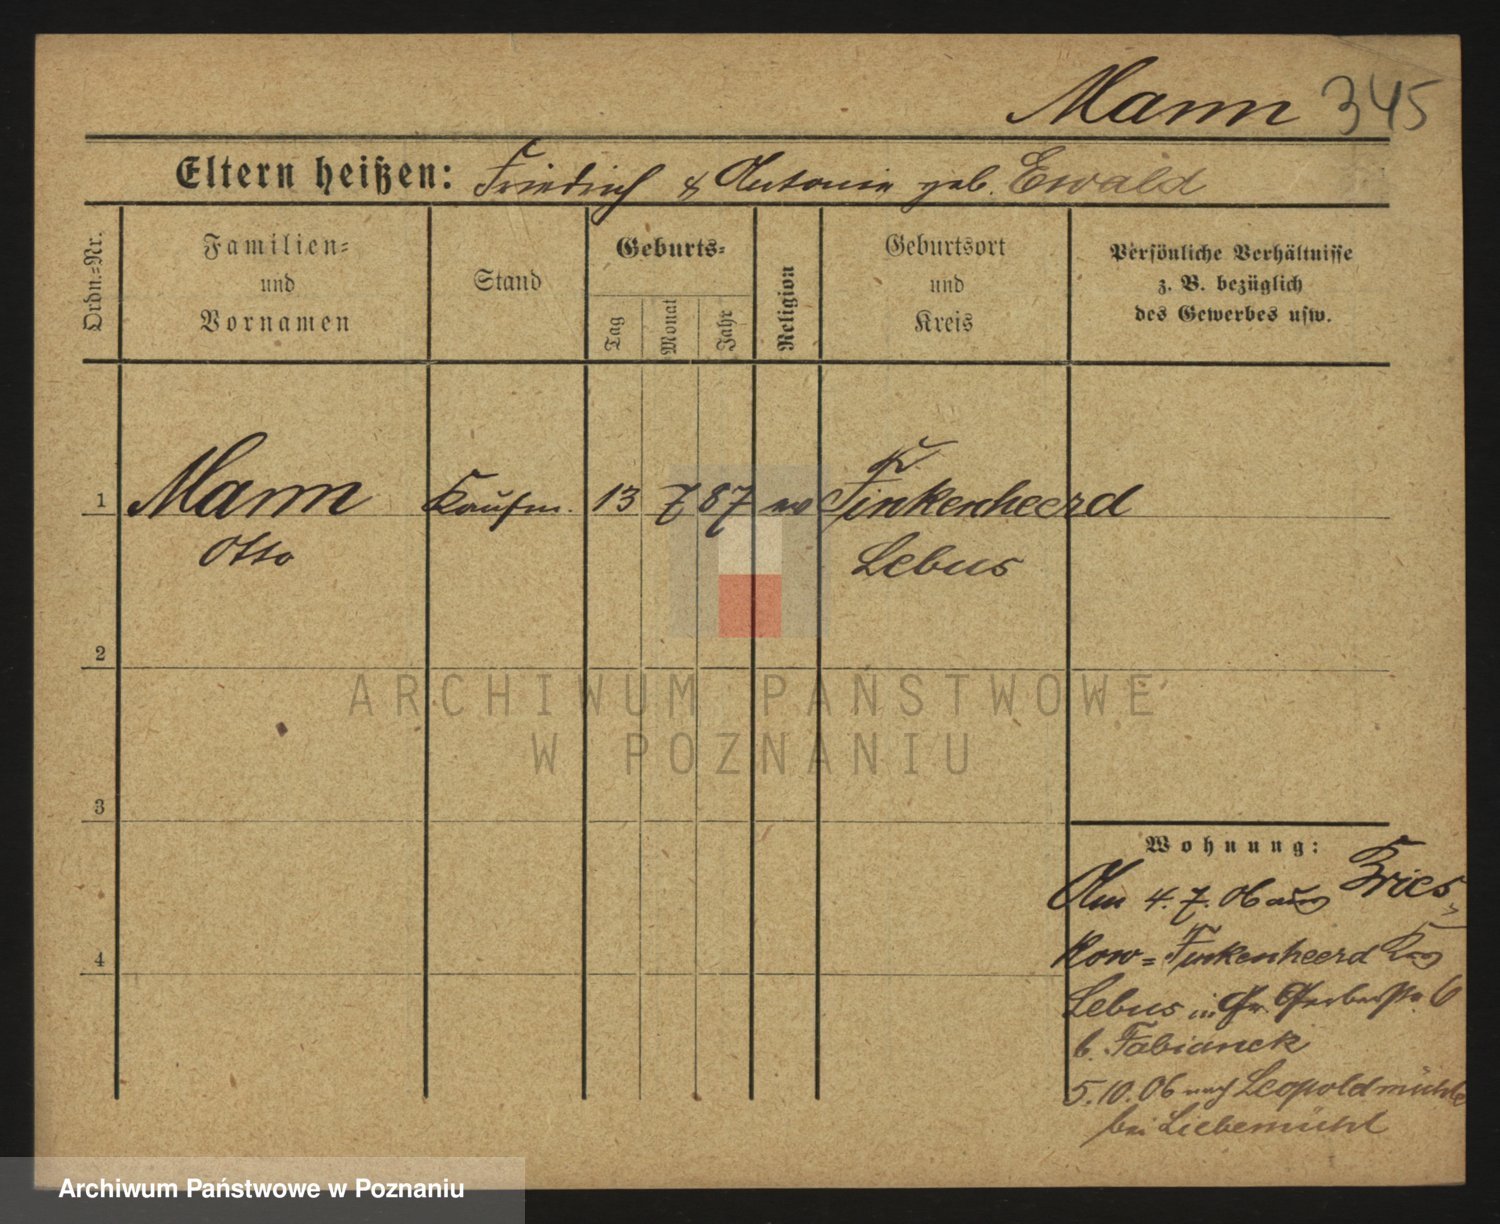 Mann 345
Eltern heißen: Friedrich & Antonie geb. Ewald
Ordn.=Nr.
Familien=
und
Vornamen
Stand
Geburts=
Tag
Monat
Jahr
Religion
Geburtsort
und
Kreis
Persönliche Verhältnisse
z. B. bezüglich
des Gewerbes usw.
1 Mann Kaufm. 13 7 87 Finkenheerd
Otto Lebus
2
3
4
Wohnung:
Am 4. 7. 06 aus Bries-
kow=Finkenheerd
Lebus in Gr. Gerberstr. 6
b. Fabianek
5.10.06 nach Leopoldmühle
bei Liebemühl
ARCHIWUM PAŃSTWOWE
W POZNANIU
Archiwum Państwowe w Poznaniu